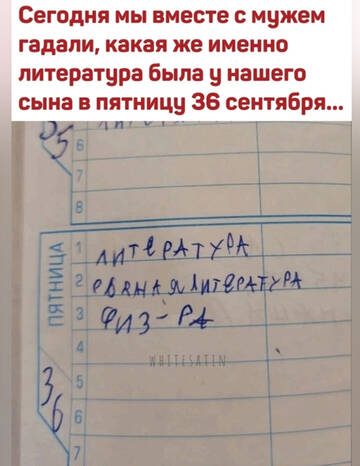 Сегодня мы вместе с мужем
гадали, какая же именно
литература была у нашего
сына в пятницу 36 сентября...
35
6
7
8
ПЯТНИЦА
1 ЛИТЕРАТУРА
2 РВАНАЯ ЛИТЕРАТУРА
3 ФИЗ-РА
4
WHITESATIN
5
36
6
7